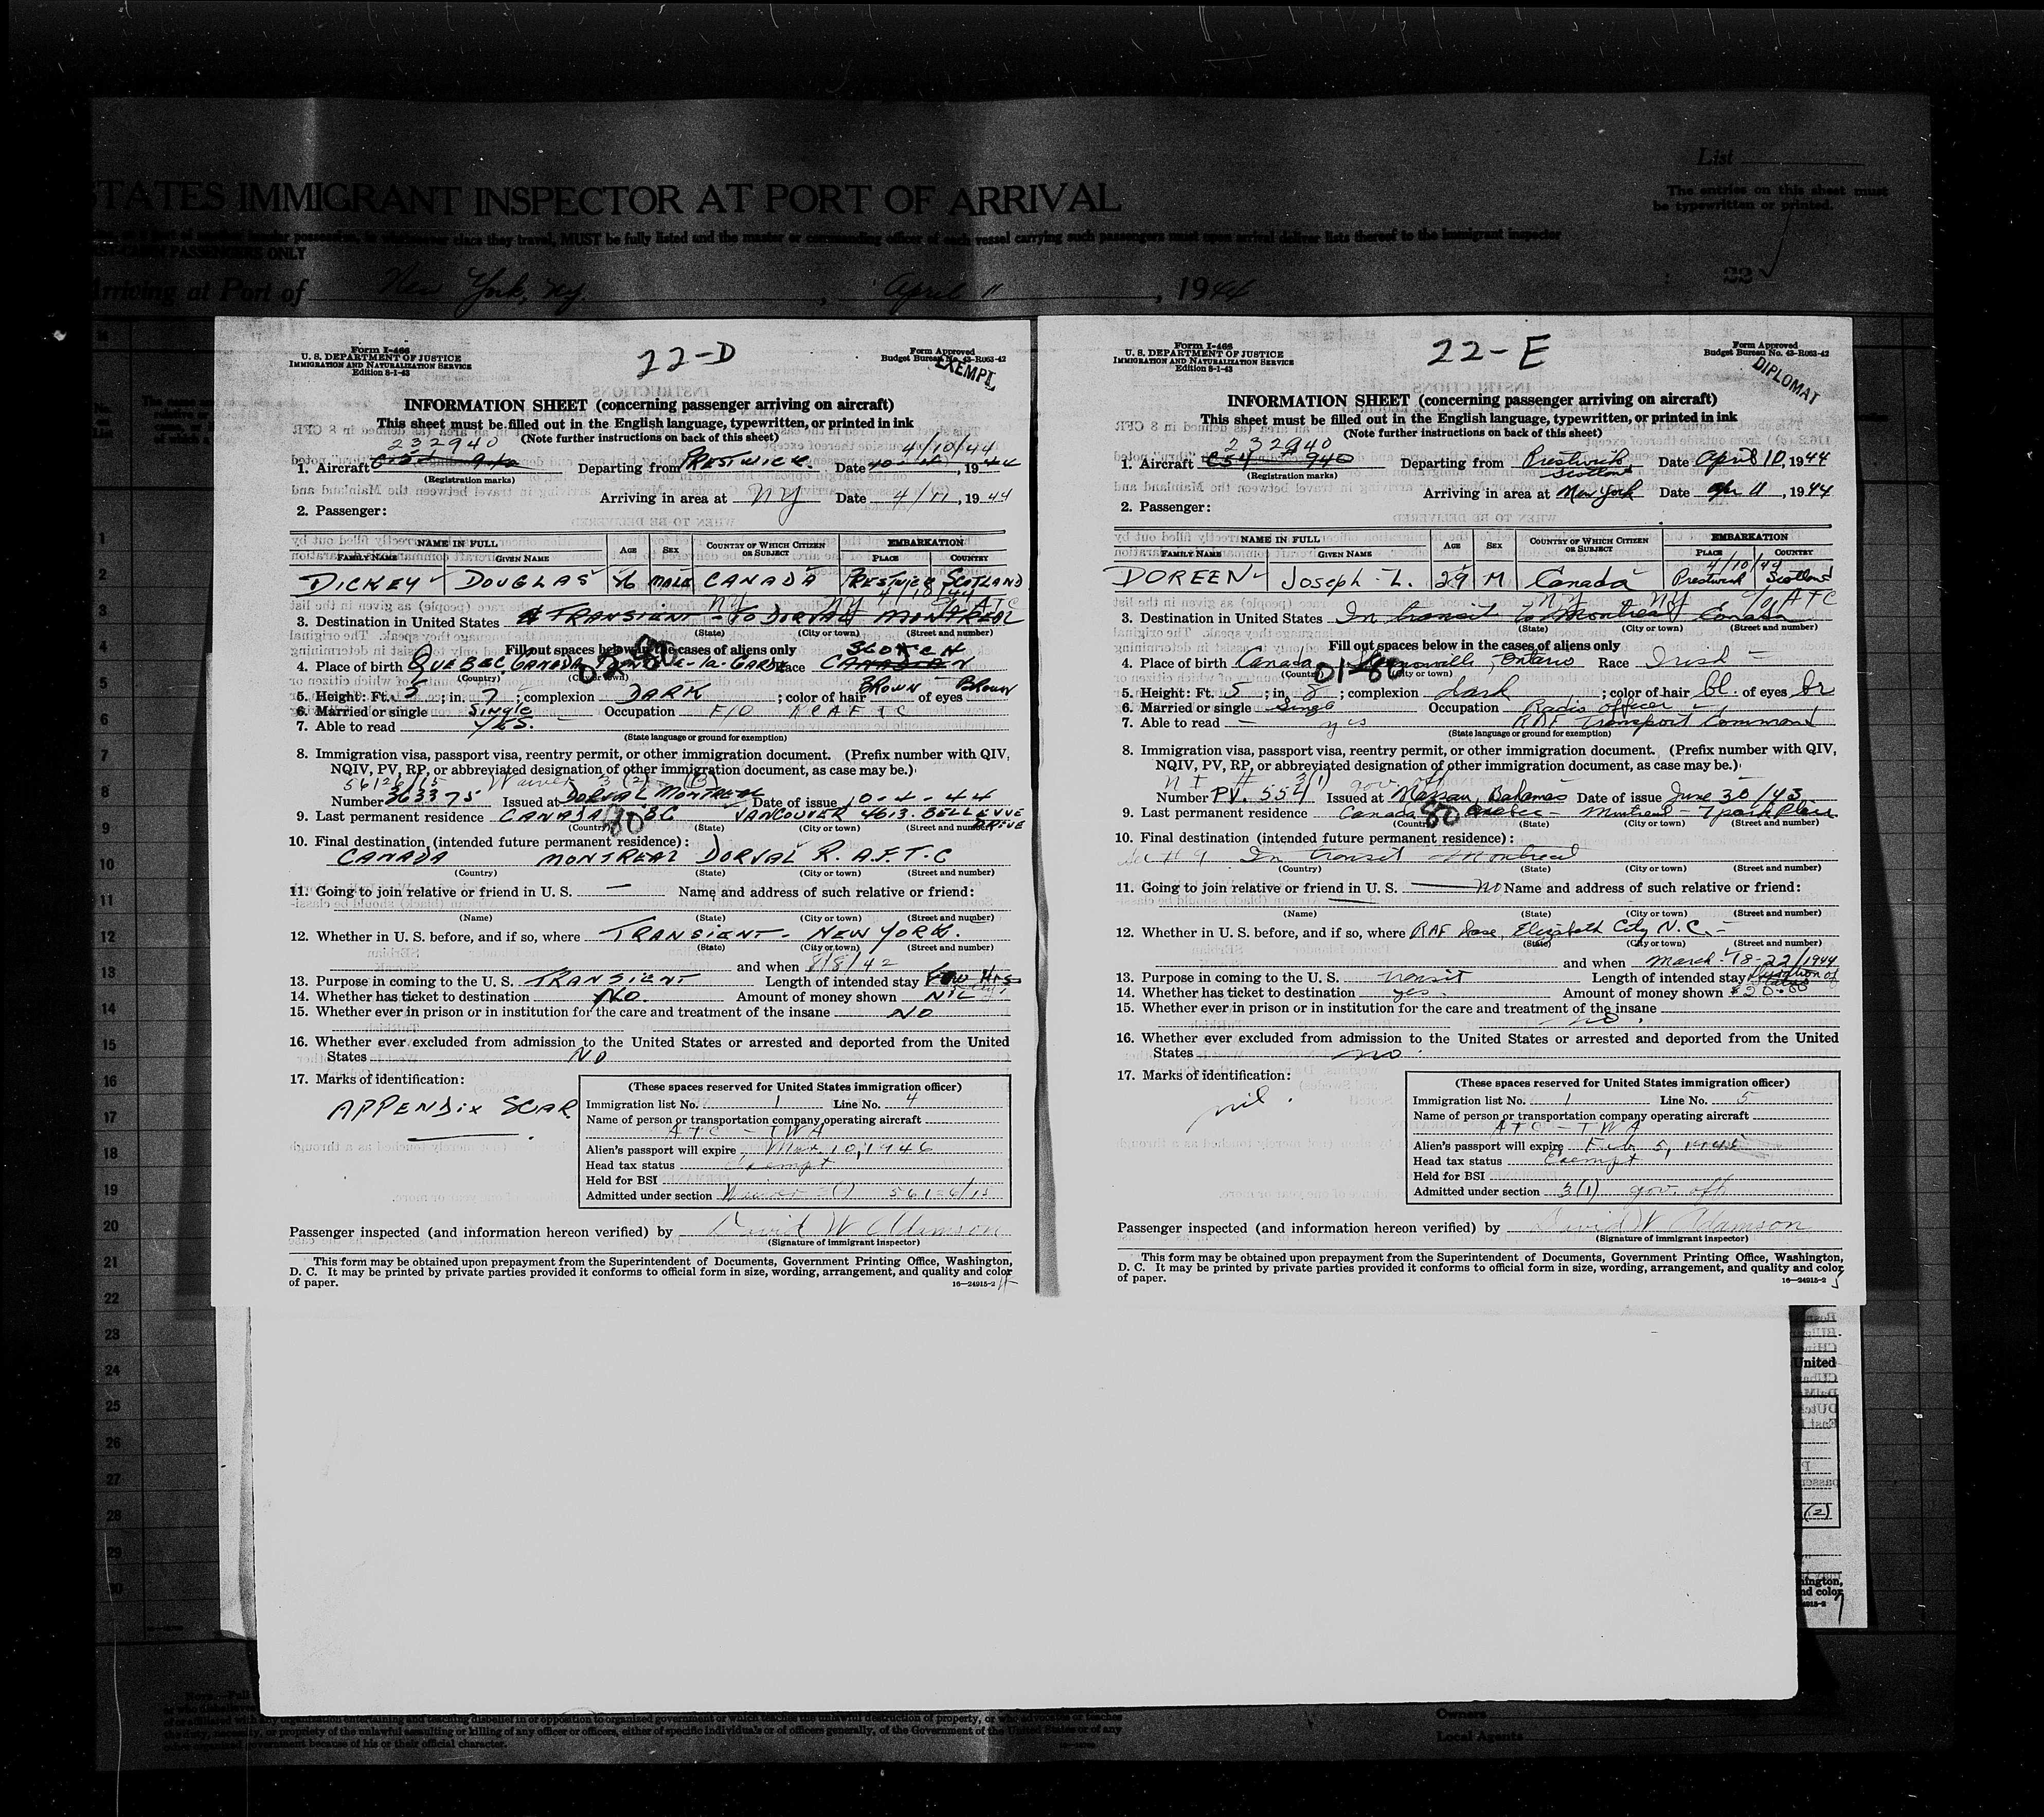 List
STATES IMMIGRANT INSPECTOR AT PORT OF ARRIVAL
The entries on this sheet must
be typewritten or printed.
possession, in whatsoever class they travel, MUST be fully listed and the master or commanding officer of each vessel carrying such passengers must upon arrival deliver lists thereof to the immigrant inspector
PASSENGERS ONLY
22
Arriving at Port of New York, NY, April 11, 1944
Form I-466
U. S. DEPARTMENT OF JUSTICE
IMMIGRATION AND NATURALIZATION SERVICE
Edition 8-1-43
22-D
Form Approved
Budget Bureau No. 43-R063-42
EXEMPT
INFORMATION SHEET (concerning passenger arriving on aircraft)
This sheet must be filled out in the English language, typewritten, or printed in ink
(Note further instructions on back of this sheet)
232940 4/10/44
1. Aircraft Departing from PRESTWICK. Date , 1944
(Registration marks)
Arriving in area at NY Date 4/11, 1944
2. Passenger:
NAME IN FULL AGE SEX COUNTRY OF WHICH CITIZEN OR SUBJECT EMBARKATION
FAMILY NAME GIVEN NAME PLACE COUNTRY
DICKEY DOUGLAS 46 MALE CANADA PRESTWICK SCOTLAND
NY NY 4/10/44 ATC
3. Destination in United States TRANSIENT - TO DORVAL MONTREAL
(State) (City or town) (Street and number)
Fill out spaces below in the cases of aliens only
SCOTCH
4. Place of birth QUEBEC, CANADA Race CANADIAN
(Country) (City or town)
BROWN BROWN
5. Height: Ft. 5; in. 7; complexion DARK; color of hair of eyes
6. Married or single Single Occupation F/O RCAF TC
7. Able to read YES.
(State language or ground for exemption)
8. Immigration visa, passport visa, reentry permit, or other immigration document. (Prefix number with QIV,
NQIV, PV, RP, or abbreviated designation of other immigration document, as case may be.)
56126/15 Waiver 3 (2)
Number 363375 Issued at DORVAL MONTREAL Date of issue 10-4-44
9. Last permanent residence CANADA BC VANCOUVER 4613 BELLEVUE
DRIVE
(Country) (State) (City or town) (Street and number)
10. Final destination (intended future permanent residence):
CANADA MONTREAL DORVAL R.A.F.T.C
(Country) (State) (City or town) (Street and number)
11. Going to join relative or friend in U. S. — Name and address of such relative or friend:
(Name) (State) (City or town) (Street and number)
12. Whether in U. S. before, and if so, where TRANSIENT - NEW YORK.
(State) (City or town) (Street and number)
and when 8/8/42
13. Purpose in coming to the U. S. TRANSIENT Length of intended stay
14. Whether has ticket to destination NO. Amount of money shown NIL
15. Whether ever in prison or in institution for the care and treatment of the insane NO
16. Whether ever excluded from admission to the United States or arrested and deported from the United
States NO
17. Marks of identification:
APPENDIX SCAR
(These spaces reserved for United States immigration officer)
Immigration list No. 1 Line No. 4
Name of person or transportation company operating aircraft
ATC - TWA
Alien's passport will expire Mar 10, 1946
Head tax status Exempt
Held for BSI
Admitted under section Waiver 3(2) 56126/15
Passenger inspected (and information hereon verified) by David W Adamson
(Signature of immigrant inspector)
This form may be obtained upon prepayment from the Superintendent of Documents, Government Printing Office, Washington,
D. C. It may be printed by private parties provided it conforms to official form in size, wording, arrangement, and quality and color
of paper. 16—24915-2
Form I-466
U. S. DEPARTMENT OF JUSTICE
IMMIGRATION AND NATURALIZATION SERVICE
Edition 8-1-43
22-E
Form Approved
Budget Bureau No. 43-R063-42
DIPLOMAT
INFORMATION SHEET (concerning passenger arriving on aircraft)
This sheet must be filled out in the English language, typewritten, or printed in ink
(Note further instructions on back of this sheet)
232940
1. Aircraft C54 940 Departing from Prestwick Scotland Date April 10, 1944
(Registration marks)
Arriving in area at New York Date Apr 11, 1944
2. Passenger:
NAME IN FULL AGE SEX COUNTRY OF WHICH CITIZEN OR SUBJECT EMBARKATION
FAMILY NAME GIVEN NAME PLACE COUNTRY
4/10/44
DOREEN Joseph L. 29 M Canada Prestwick Scotland
NY NY c/o ATC
3. Destination in United States In transit to Montreal Canada
(State) (City or town) (Street and number)
Fill out spaces below in the cases of aliens only
4. Place of birth Canada Ontario Race Irish
(Country) (City or town)
5. Height: Ft. 5; in. 8; complexion dark; color of hair bl. of eyes br
6. Married or single Single Occupation Radio officer
7. Able to read yes RAF Transport Command
(State language or ground for exemption)
8. Immigration visa, passport visa, reentry permit, or other immigration document. (Prefix number with QIV,
NQIV, PV, RP, or abbreviated designation of other immigration document, as case may be.)
3(1) gov. off
Number PV. 554 Issued at Nassau, Bahamas Date of issue June 30/43
9. Last permanent residence Canada Quebec - Montreal - 7 park Place
(Country) (State) (City or town) (Street and number)
10. Final destination (intended future permanent residence):
In transit Montreal
(Country) (State) (City or town) (Street and number)
11. Going to join relative or friend in U. S. — no Name and address of such relative or friend:
(Name) (State) (City or town) (Street and number)
12. Whether in U. S. before, and if so, where RAF base, Elizabeth City N.C. -
(State) (City or town) (Street and number)
and when March 18-22/1944
13. Purpose in coming to the U. S. transit Length of intended stay
14. Whether has ticket to destination yes. Amount of money shown $20.00
15. Whether ever in prison or in institution for the care and treatment of the insane
no.
16. Whether ever excluded from admission to the United States or arrested and deported from the United
States no.
17. Marks of identification:
nil.
(These spaces reserved for United States immigration officer)
Immigration list No. 1 Line No. 5
Name of person or transportation company operating aircraft
ATC - TWA
Alien's passport will expire Feb 5, 1945
Head tax status Exempt
Held for BSI
Admitted under section 3(1) gov. off.
Passenger inspected (and information hereon verified) by David W Adamson
(Signature of immigrant inspector)
This form may be obtained upon prepayment from the Superintendent of Documents, Government Printing Office, Washington,
D. C. It may be printed by private parties provided it conforms to official form in size, wording, arrangement, and quality and color
of paper. 16—24915-2
United
(2)
or affiliated with any organization entertaining and teaching disbelief in or opposition to organized government or which teaches the unlawful destruction of property, or who advocates or teaches
the duty, necessity, or propriety of the unlawful assaulting or killing of any officer or officers, either of specific individuals or of officers generally, of the Government of the United States or of any
other organized government because of his or their official character.
Owners
Local Agents